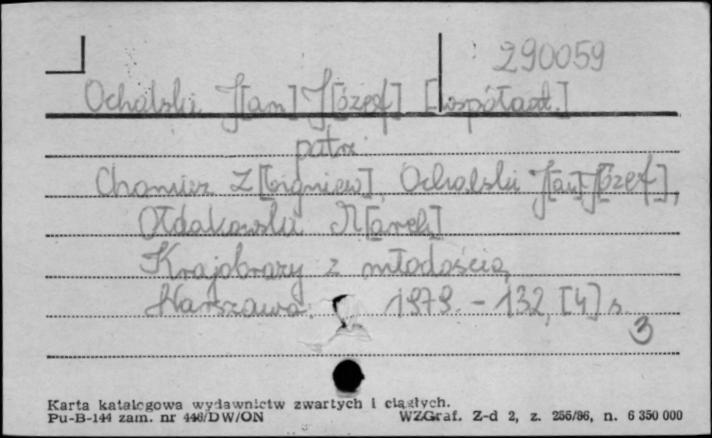 290059
Ochalski J[an] J[ózef] [współaut.]
patrz
Chomicz Z[bigniew], Ochalski J[an] J[ózef],
Ołdakowski M[arek]
Krajobrazy z młodością,
Warszawa. 1979. - 132, [4] s.
3
Karta katalogowa wydawnictw zwartych i ciągłych.
Pu-B-144 zam. nr 446/DW/ON WZGraf. Z-d 2, z. 256/86, n. 6 350 000